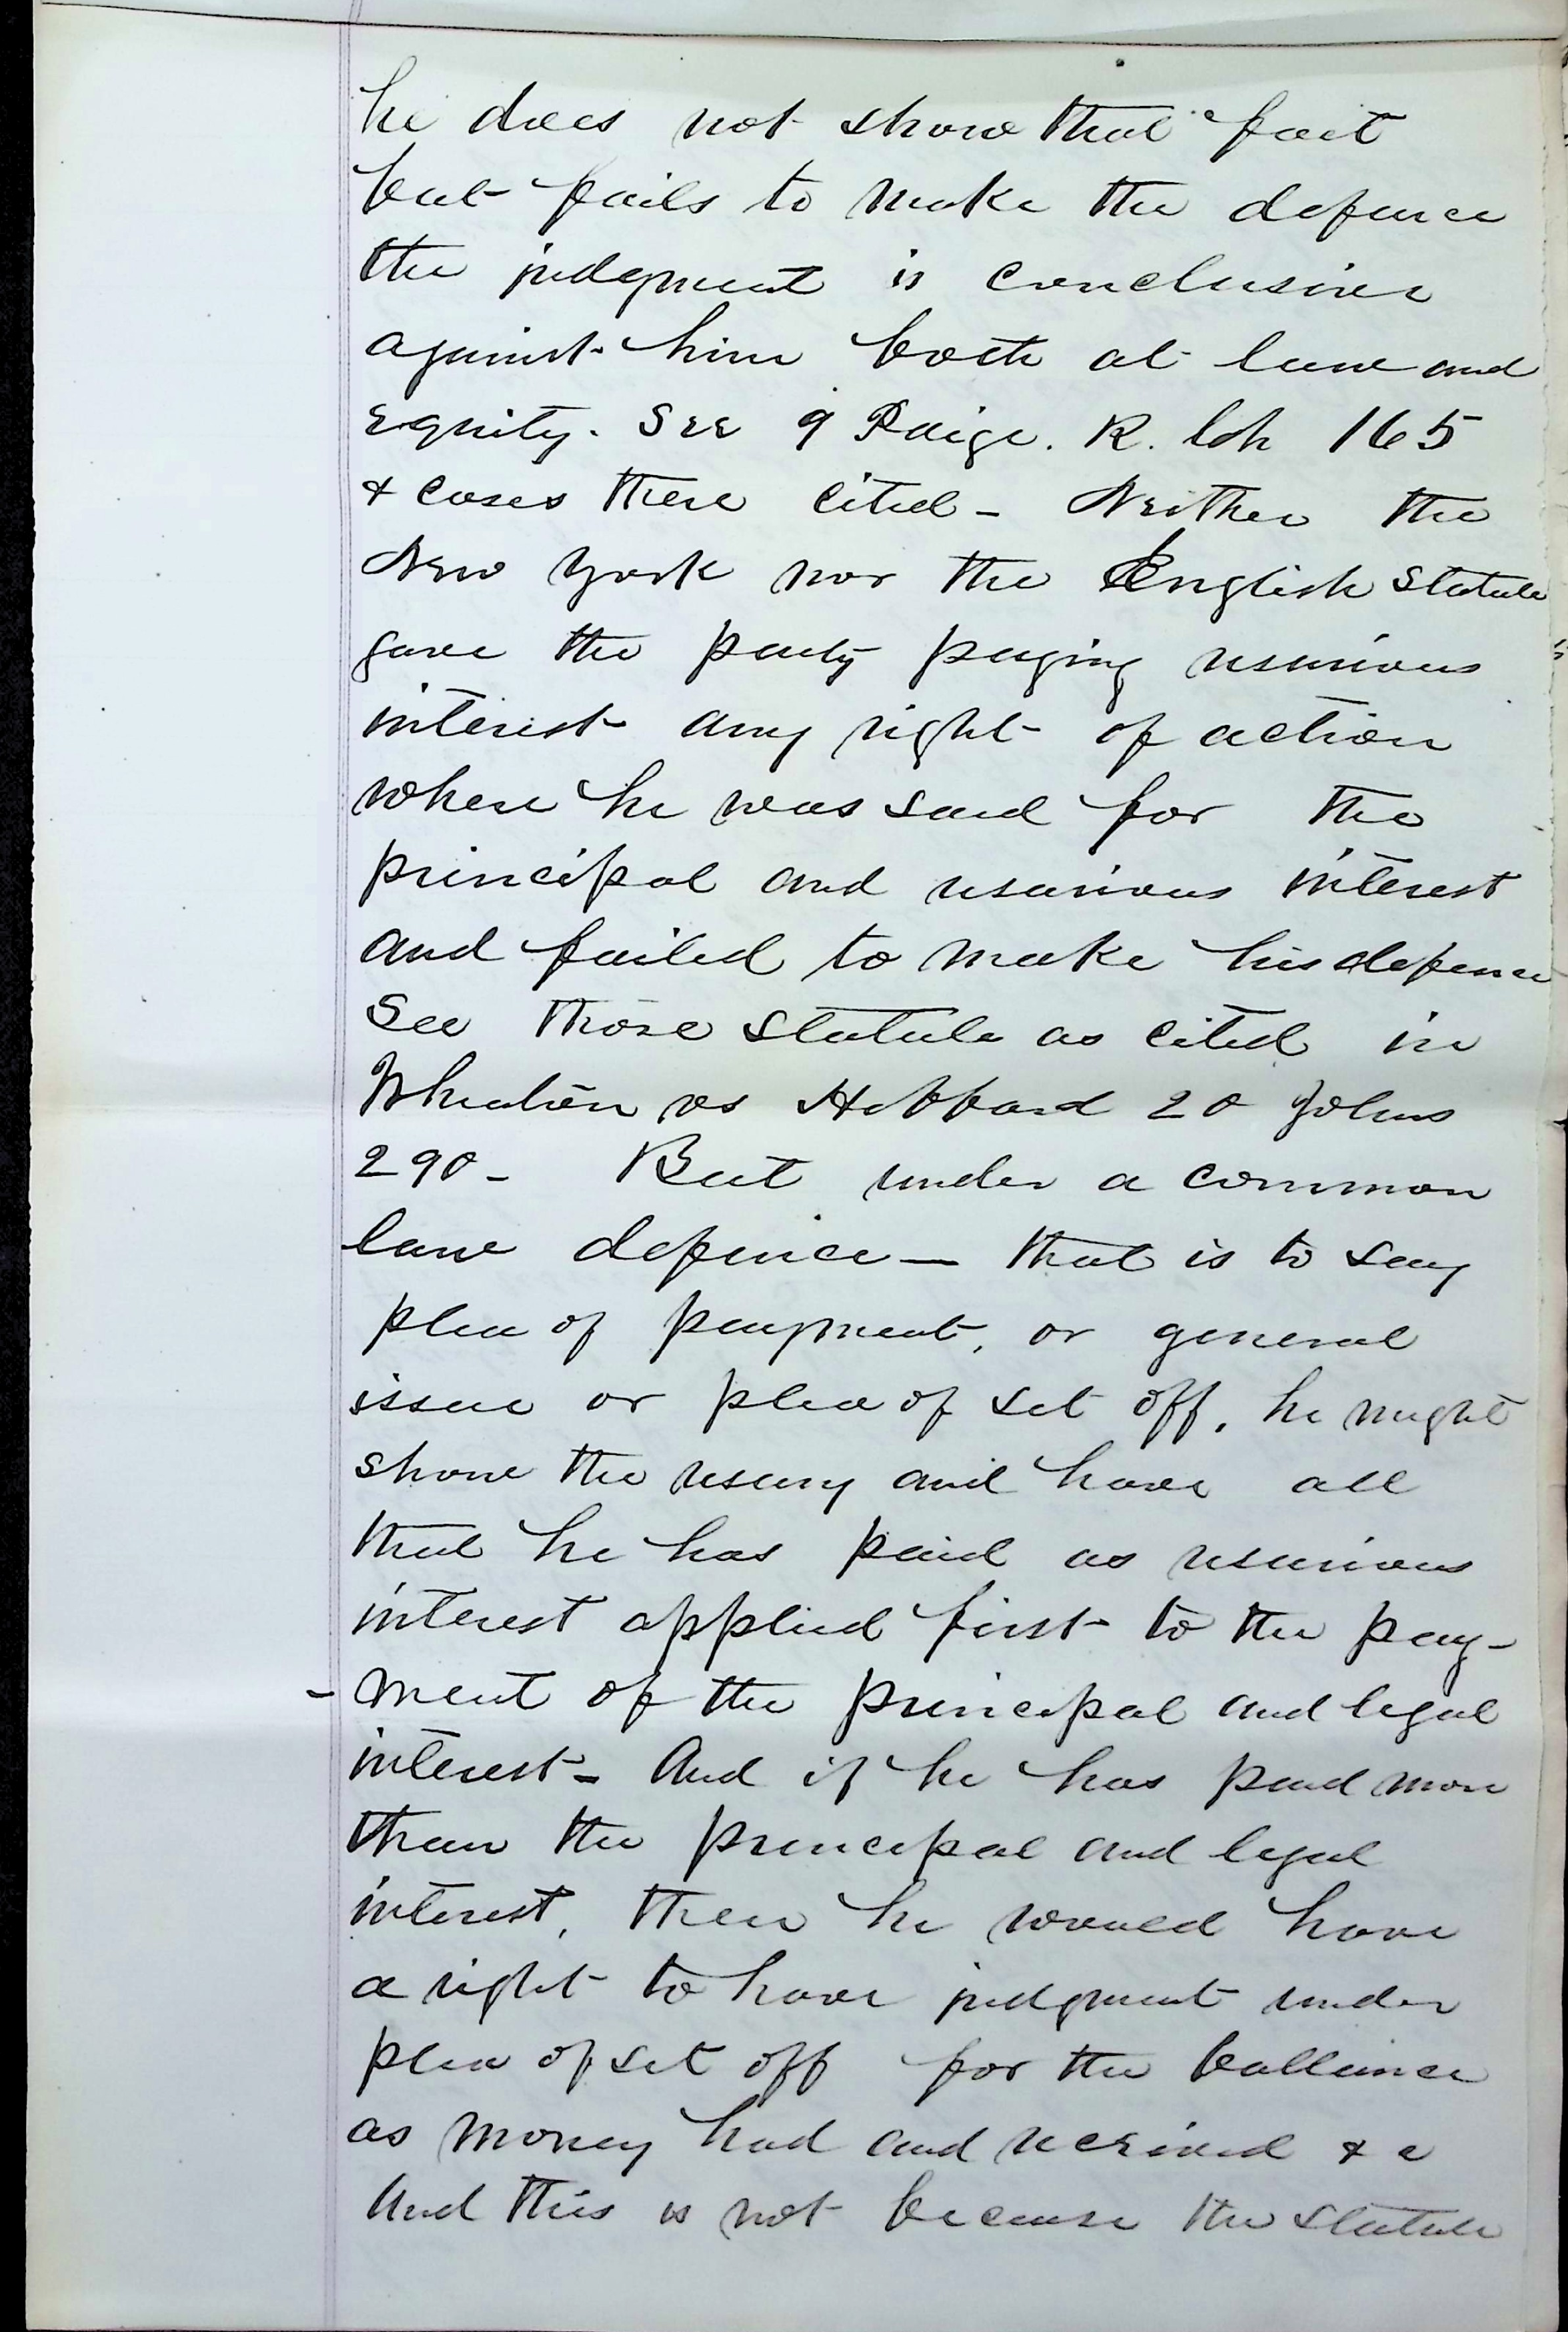 he does not show that fact
but fails to make the defence
the judgment is conclusive
against him both at law and
equity. See 9 Paige. R. Ch 165
& cases there cited - Neither the
New York nor the English Statute
gave the party paying usurious
interest any right of action
where he was sued for the
principal and usurious interest
and failed to make his defence
See those Statute as cited in
Wheaton vs Hibbard 20 Johns
290 - But under a common
law defence — that is to say
plea of payment, or general
issue or plea of set off, he might
show the usury and have all
that he has paid as usurious
interest applied first to the pay-
-ment of the principal and legal
interest - And if he has paid more
than the principal and legal
interest, then he would have
a right to have judgment under
plea of set off for the ballance
as money had and received & c
And this is not because the statute